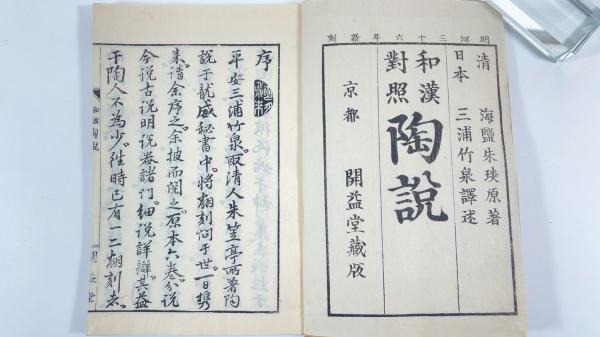 明治三十六年新刻
清 海鹽朱琰原著
日本 三浦竹泉譯述
和漢對照
陶說
京都 開益堂藏版
序
平安三浦竹泉。取清人朱笠亭所著陶
說于龍威秘書中。將翻刻問于世。一日携
来請余序之。余披而閱之。原本六卷。分說
今說古說明說器諸門。細說詳辯。其益
于陶人不為少。徃時已有一二翻刻者。
和漢陶說